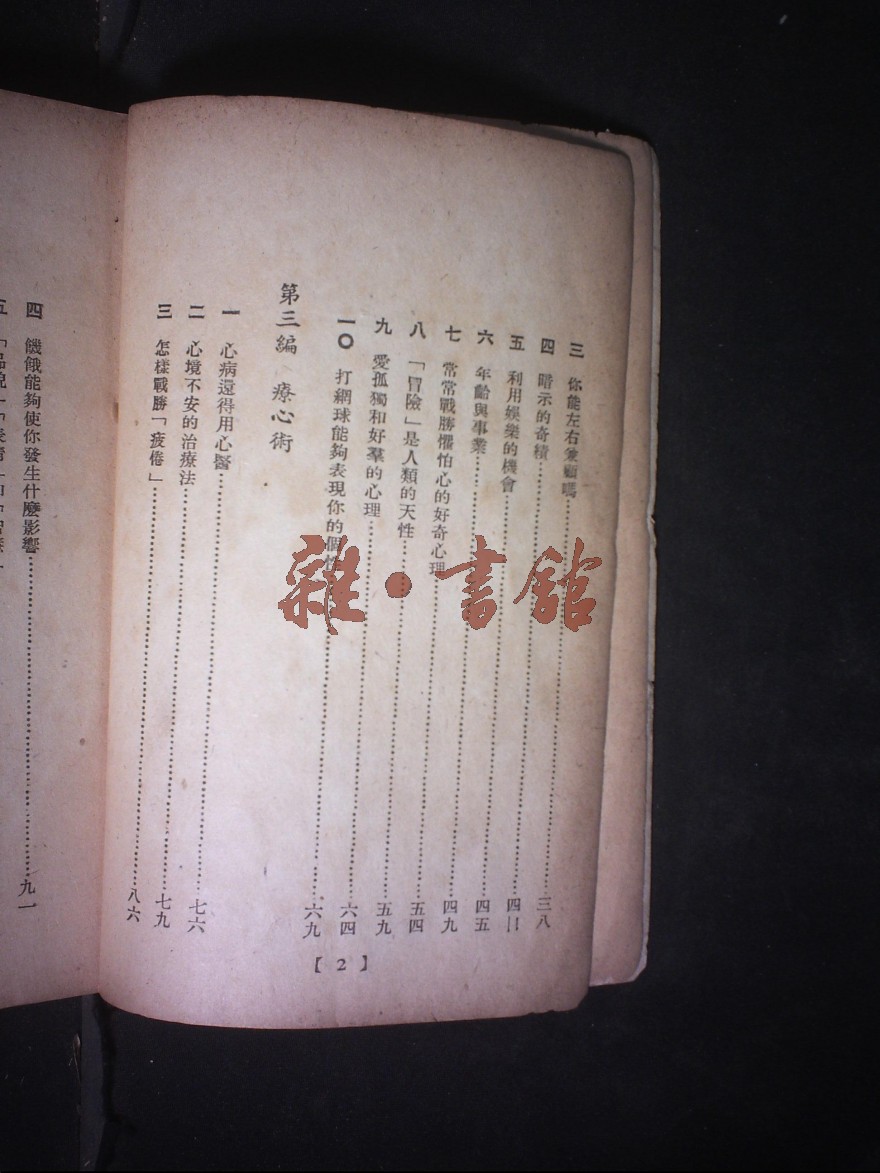 三 你能左右兼顧嗎……三八
四 暗示的奇績……四二
五 利用娛樂的機會……四五
六 年齡與事業……四九
七 常常戰勝懼怕心的好奇心理……五四
八 「冒險」是人類的天性……五九
九 愛孤獨和好羣的心理……六四
一〇 打網球能夠表現你的個性……六九
第三編 療心術
一 心病還得用心醫……七六
二 心境不安的治療法……七九
三 怎樣戰勝「疲倦」……八六
【2】
四 饑餓能夠使你發生什麼影響……九一
五
雜·書館